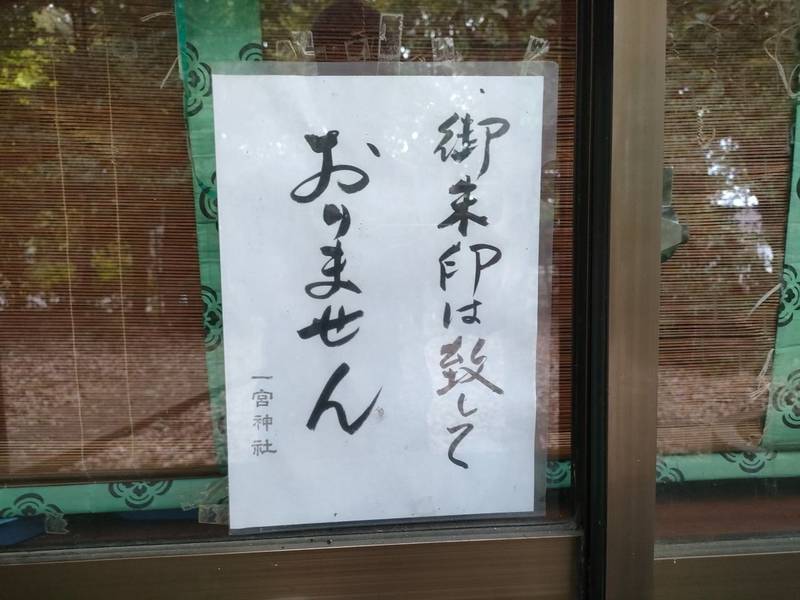 御朱印は致して
おりません
一宮神社